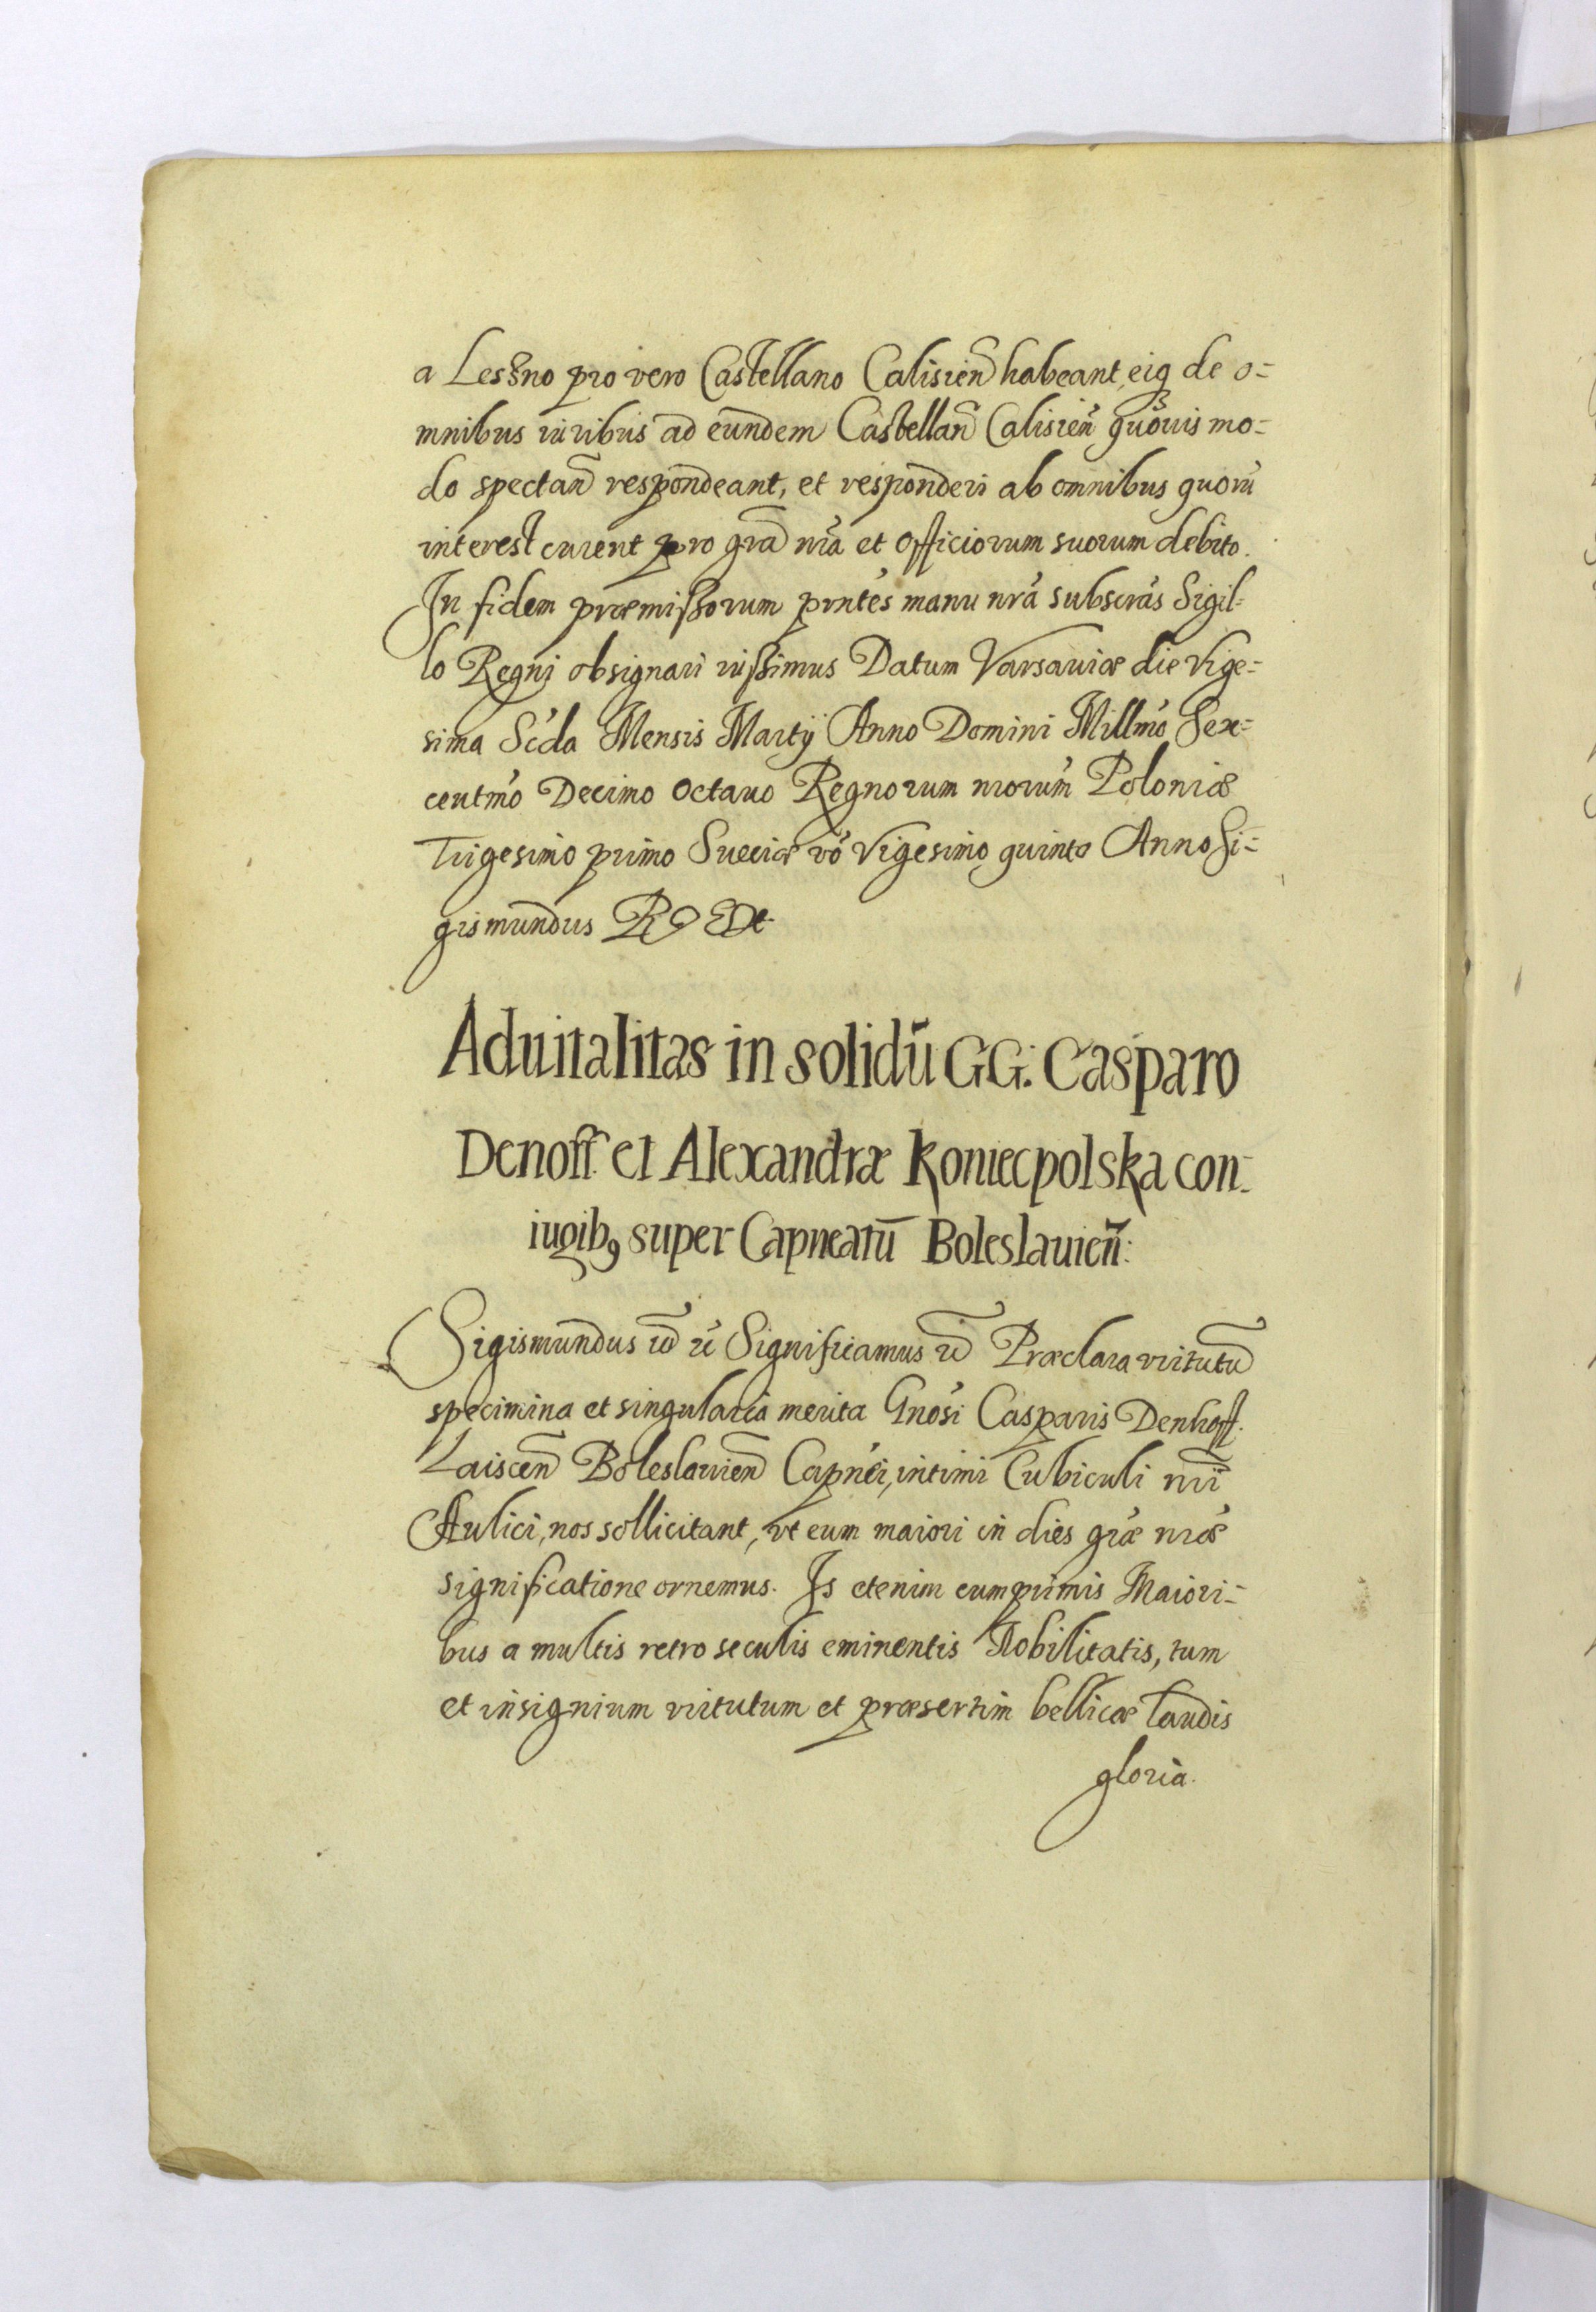 a Leszno pro vero Castellano Calisien̄ habeant, eiq3 de o=
mnibus iuribus ad eundem Castellan̄ Calisien̄ quouis mo=
do spectan̄ respondeant, et responderi ab omnibus quorū
interest curent pro grã nrã et officiorum suorum debito.
In fidem præmissorum pñtes manu nrã subscrás Sigil=
lo Regni obsignari iussimus Datum Varsauiæ die Vige=
sima Scda Mensis Martÿ Anno Domini Millmo Sex=
centmo Decimo Octauo Regnorum nrorum Poloniæ
Trigesimo primo Sueciæ vo Vigesimo quinto Anno Si=
gismundus R
Aduitalitas in solidū GG: Casparo
Denoff et Alexandræ Koniecpolska con=
iugib9 super Capneatū Boleslauien̄:
Sigismundus Significamus Præclara virtutū
specimina et singularia merita Gnosi Casparis Denhoff.
Laiscen̄ Boleslauien̄ Capnei, intimi Cubiculi nrī
Aulici, nos sollicitant, vt eum maiori in dies græ nræ
significatione ornemus. Is etenim cum primis Maiori=
bus a multis retro seculis eminentis Nobilitatis, tum
et insignium virtutum et præsertim bellicæ laudis
gloria.